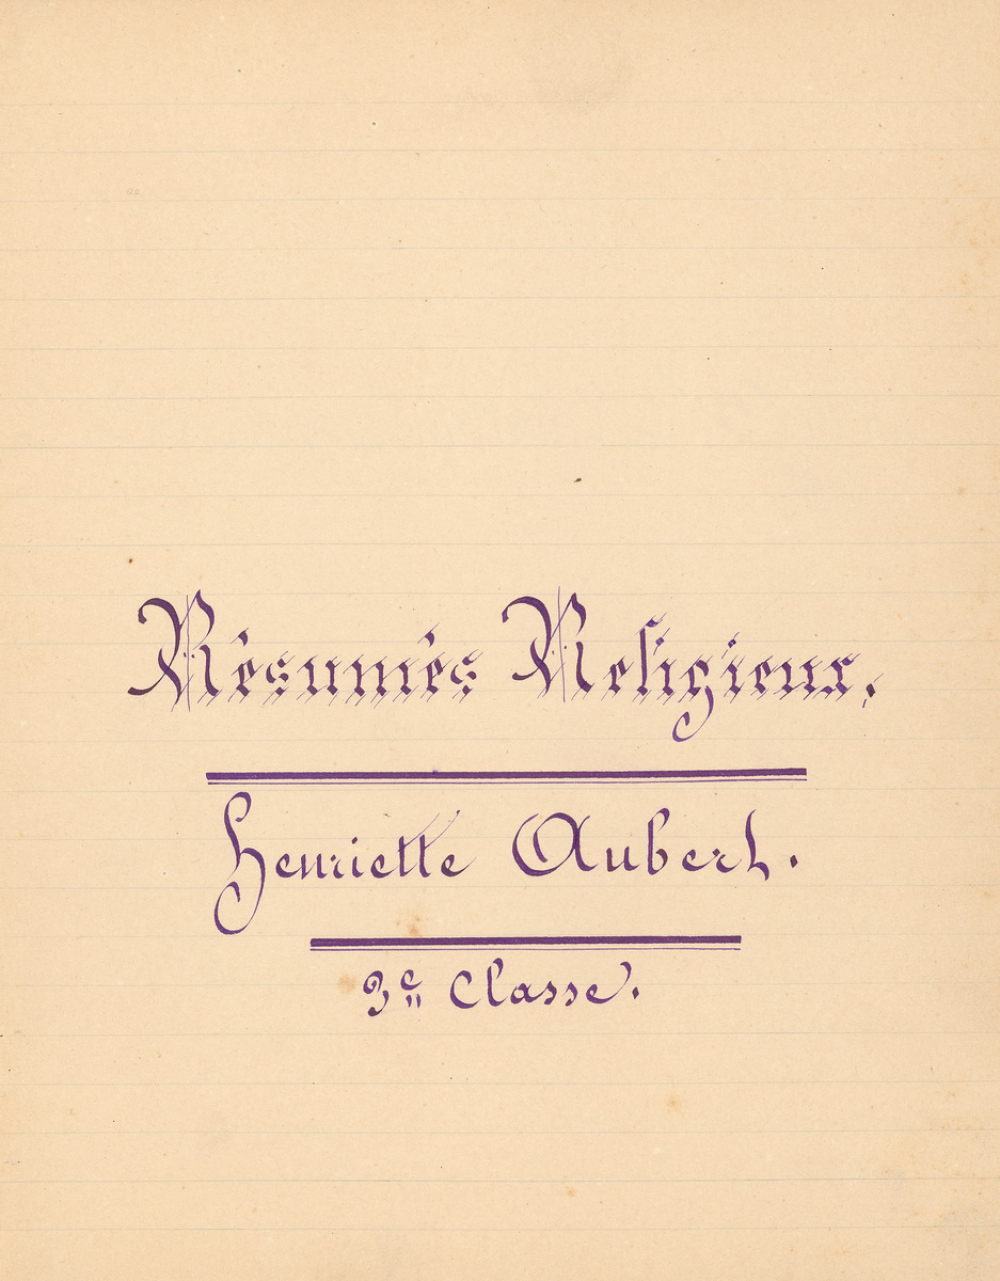 Résumés Religieux.
Henriette Aubert.
3e Classe.